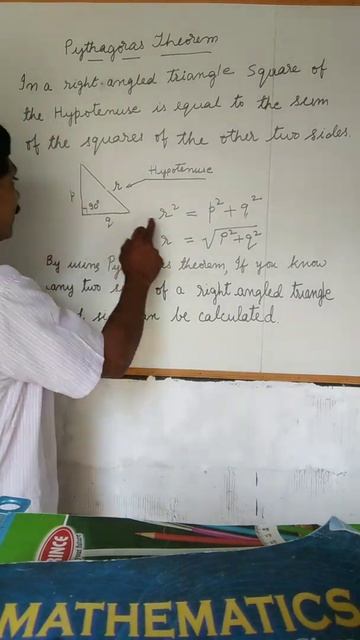 Pythagoras Theorem
In a right angled triangle Square of
the Hypotenuse is equal to the sum
of the squares of the other two sides.
Hypotenuse
p r
90°
q
r² = p² + q²
r = √p²+q²
By using theorem, If you know
any two of a right angled triangle
can be calculated.
MATHEMATICS